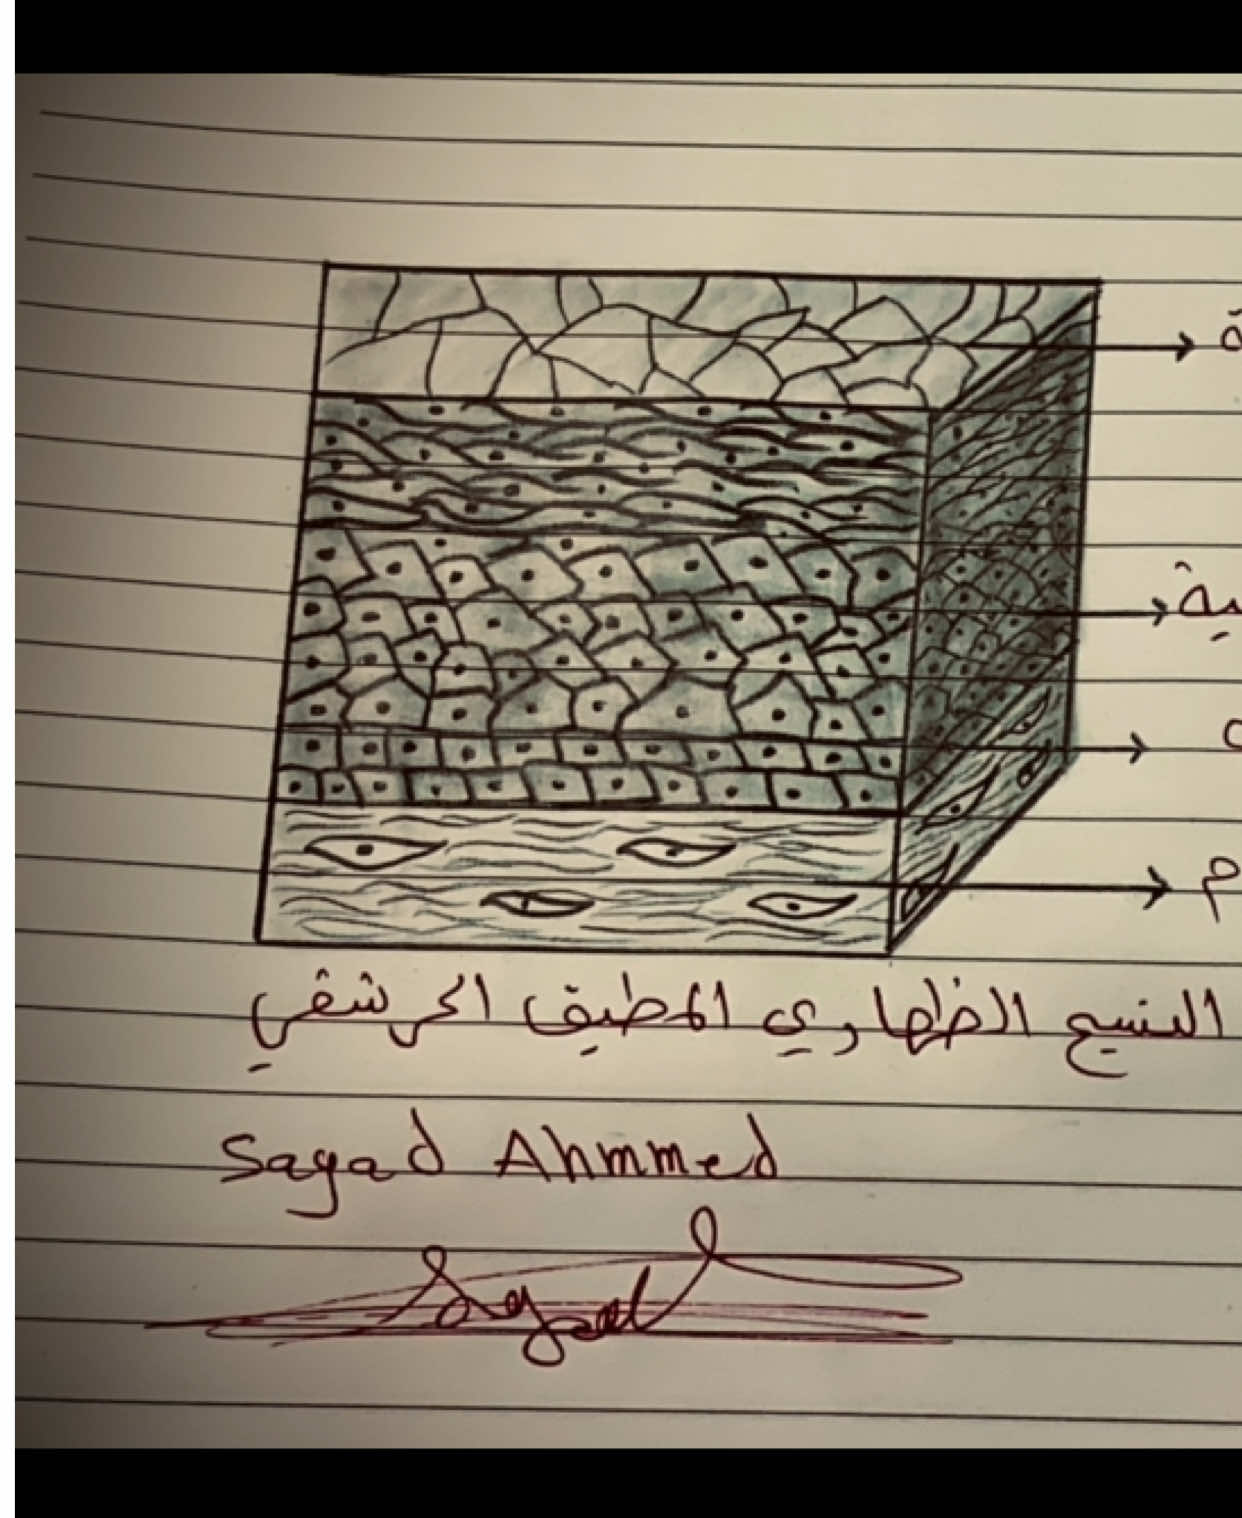 النسيج الظهاري المطبق الحرشفي
Sayad Ahmmed
Sayad